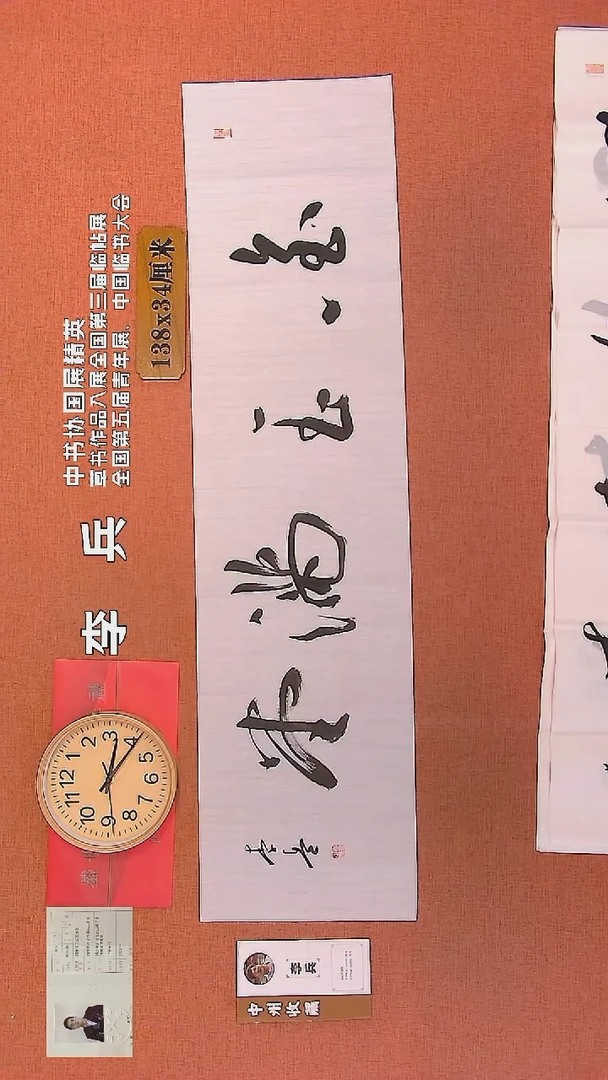 中书协国展精英
草书作品入展全国第三届临帖展
全国第五届青年展、中国临书大会
李 兵
138x34厘米
金玉满堂
李兵
12
1
2
3
4
5
6
7
8
9
10
11
李兵
中州收藏